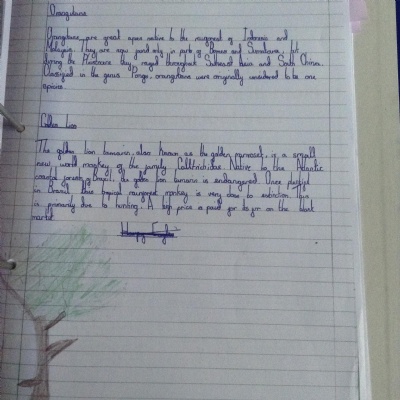 Orangutans
Orangutans are great apes native to the rainforest of Indonesia and
Malaysia. They are now found only in parts of Borneo and Sumatra, but
during the Pleistocene they ranged throughout Southeast Asia and South China.
Classified in the genus Pongo, orangutans were originally considered to be one
species.
Golden Lion
The golden lion tamarin also known as the golden marmoset, is a small
new world monkey of the family Callitrichidae. Native to the Atlantic
coastal forests of Brazil, the golden lion tamarin is endangered. Once
in Brazil this tropical rainforest monkey is very close to extinction this
is primarily due to hunting. A high price is paid for its fur on the black
market.